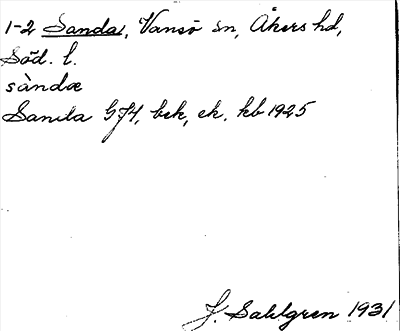 1-2 Sanda, Vansö sn, Åkers hd,
Söd. l.
sàndæ
Sanda GJ4, bek, ek. kb 1925
J. Sahlgren 1931